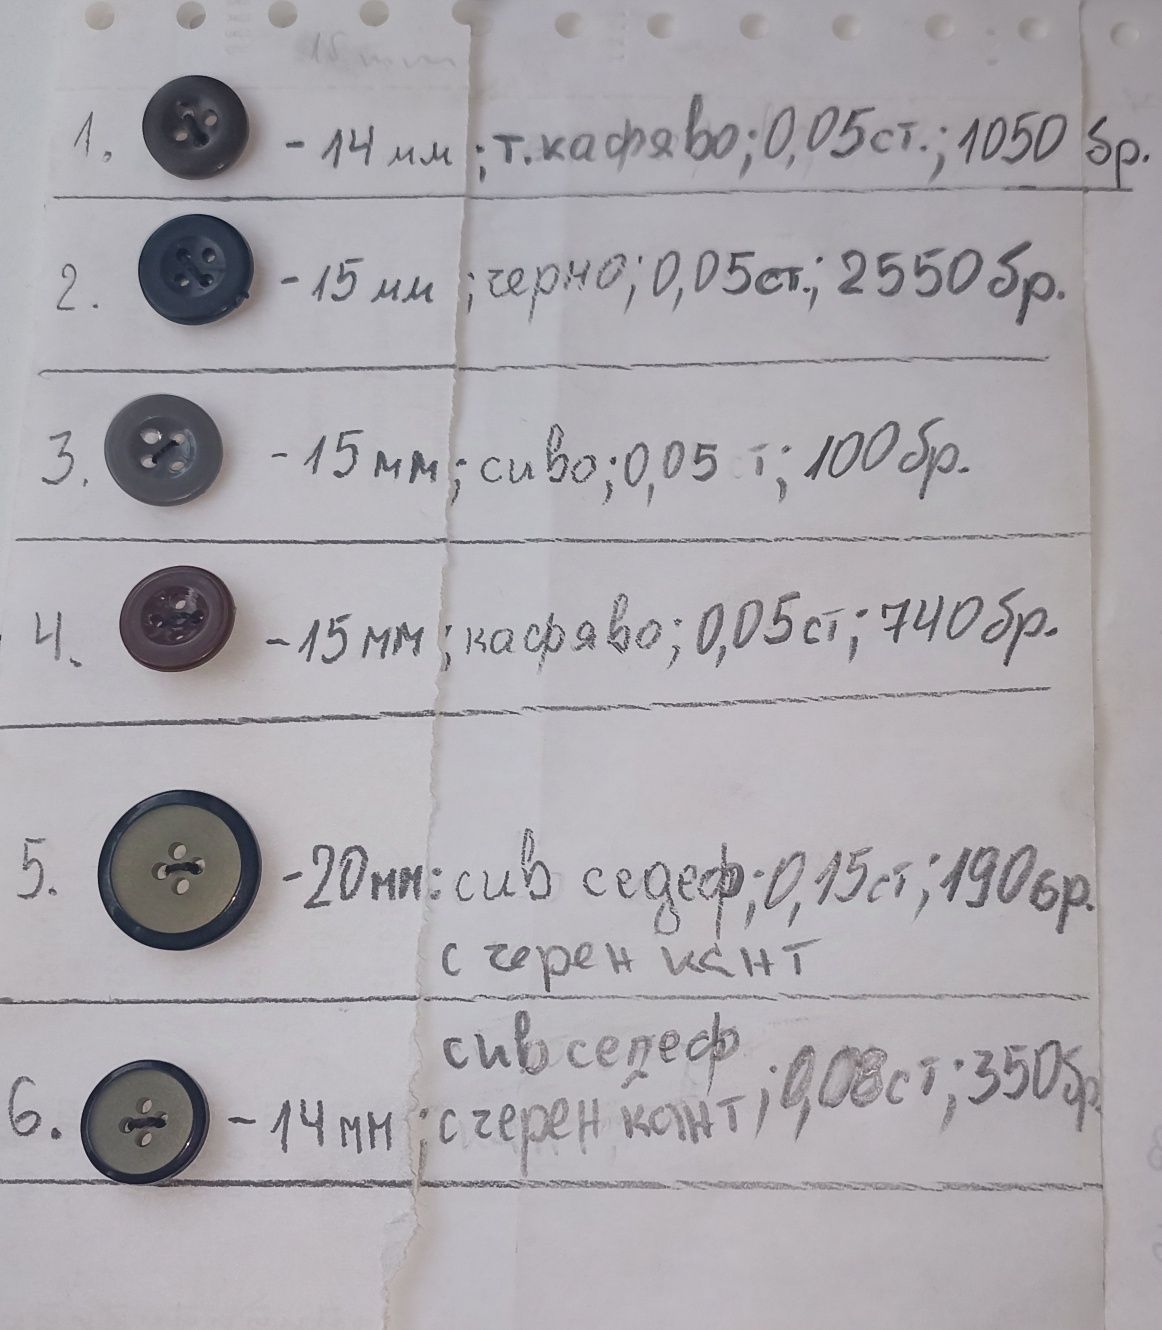 1. - 14 мм ; т. кафяво; 0,05 ст.; 1050 бр.
2. - 15 мм ; черно; 0,05 ст.; 2550 бр.
3. - 15 мм; сиво; 0,05 т; 100 бр.
4. - 15 мм; кафяво; 0,05 ст; 740 бр.
5. - 20 мм: сив седеф; 0,15 ст; 190 бр.
с черен кант
сив седеф
6. - 14 мм; с черен кант; 0,08 ст; 350 бр.